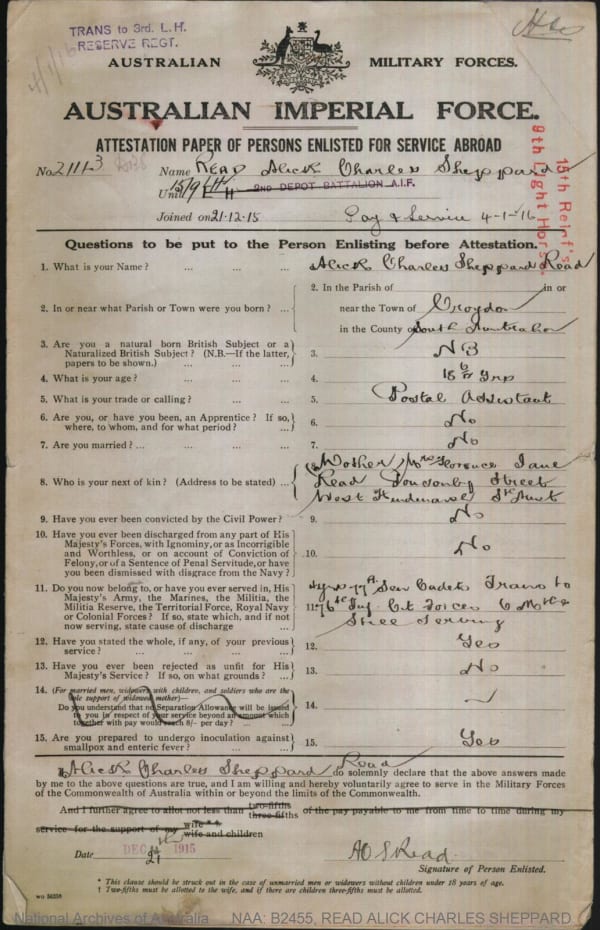 TRANS to 3rd. L.H.
RESERVE REGT.
AUSTRALIAN MILITARY FORCES.
AUSTRALIAN IMPERIAL FORCE.
ATTESTATION PAPER OF PERSONS ENLISTED FOR SERVICE ABROAD
No. 2113 Name READ Alick Charles Sheppard
Unit 15/9 L H 2ND DEPOT BATTALION A.I.F.
Joined on 21.12.15 Pay & Service 4-1-16
15th Reinf's
9th Light Horse.
Questions to be put to the Person Enlisting before Attestation.
1. What is your Name? ... ... ... Alick Charles Sheppard Read
2. In or near what Parish or Town were you born? ... 2. In the Parish of in or
near the Town of Croydon
in the County of South Australia
3. Are you a natural born British Subject or a
Naturalized British Subject? (N.B.—If the latter,
papers to be shown.) ... ... ... 3. NB
4. What is your age? ... ... ... 4. 18 yrs
5. What is your trade or calling? ... ... 5. Postal Assistant
6. Are you, or have you been, an Apprentice? If so,
where, to whom, and for what period? ... 6. No
7. Are you married? ... ... ... ... 7. No
8. Who is your next of kin? (Address to be stated) ... 8. Mother Mrs Florence Jane
Read Ponsonby Street
West Hindmarsh Sth Aust
9. Have you ever been convicted by the Civil Power? 9. No
10. Have you ever been discharged from any part of His
Majesty's Forces, with Ignominy, or as Incorrigible
and Worthless, or on account of Conviction of
Felony, or of a Sentence of Penal Servitude, or have
you been dismissed with disgrace from the Navy? 10. No
11. Do you now belong to, or have you ever served in, His
Majesty's Army, the Marines, the Militia, the
Militia Reserve, the Territorial Force, Royal Navy
or Colonial Forces? If so, state which, and if not
now serving, state cause of discharge ... 11. Sen Cadets Trans to
76th Inf Cit Forces 6 Mths
Still Serving
12. Have you stated the whole, if any, of your previous
service? ... ... ... ... ... 12. Yes
13. Have you ever been rejected as unfit for His
Majesty's Service? If so, on what grounds? ... 13. No
14. (For married men, widowers with children, and soldiers who are the
sole support of widowed mother)—
Do you understand that no Separation Allowance will be issued
to you in respect of your service beyond an amount which
together with pay would reach 8/- per day? ... ... 14.
15. Are you prepared to undergo inoculation against
smallpox and enteric fever? ... ... ... 15. Yes
I Alick Charles Sheppard Read do solemnly declare that the above answers made
by me to the above questions are true, and I am willing and hereby voluntarily agree to serve in the Military Forces
of the Commonwealth of Australia within or beyond the limits of the Commonwealth.
And I further agree to allot not less than two-fifths
three-fifths of the pay payable to me from time to time during my
service for the support of my wife**
wife and children
Date DEC 21st 1915 A C S Read.
Signature of Person Enlisted.
* This clause should be struck out in the case of unmarried men or widowers without children under 18 years of age.
† Two-fifths must be allotted to the wife, and if there are children three-fifths must be allotted.
National Archives of Australia NAA: B2455, READ ALICK CHARLES SHEPPARD